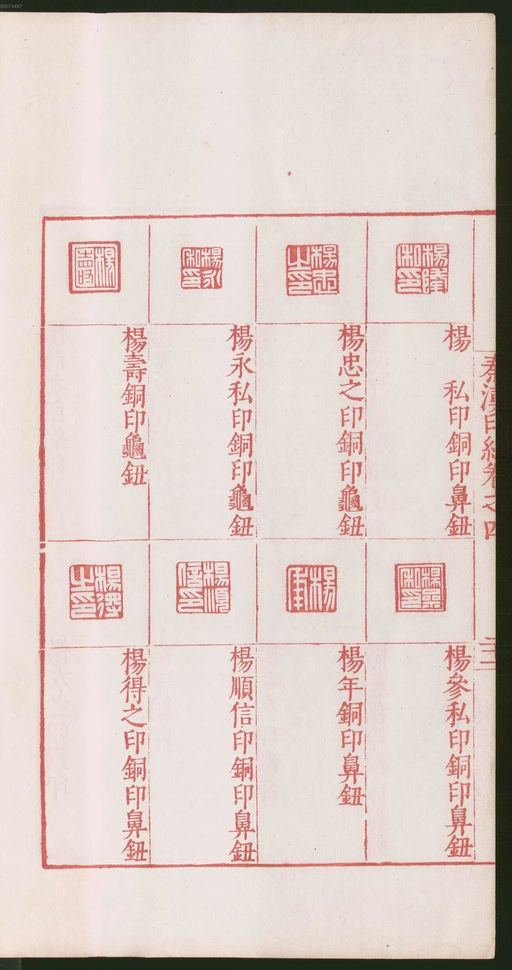 秦漢印統卷之四
楊　私印銅印鼻鈕
楊忠之印銅印龜鈕
楊永私印銅印龜鈕
楊壽銅印龜鈕
楊參私印銅印鼻鈕
楊年銅印鼻鈕
楊順信印銅印鼻鈕
楊得之印銅印鼻鈕